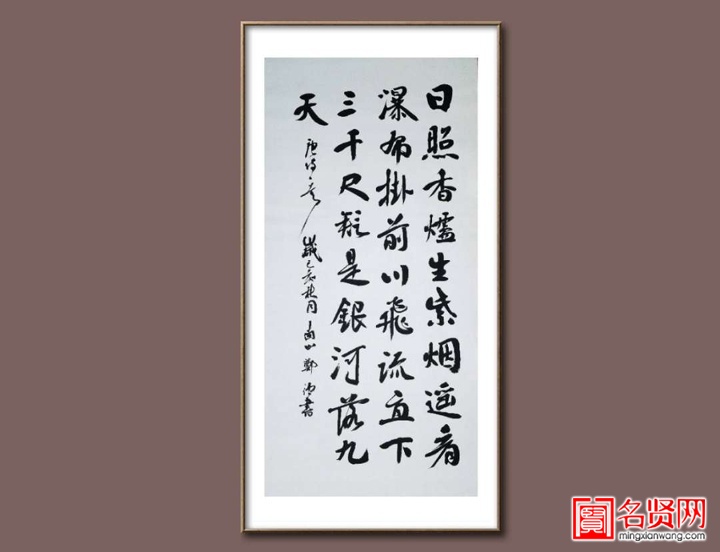 日照香爐生紫烟遥看
瀑布掛前川飛流直下
三千尺疑是銀河落九
天
唐诗一首
歲己亥秋月
鄭
書
名贤网
mingxianwang.com